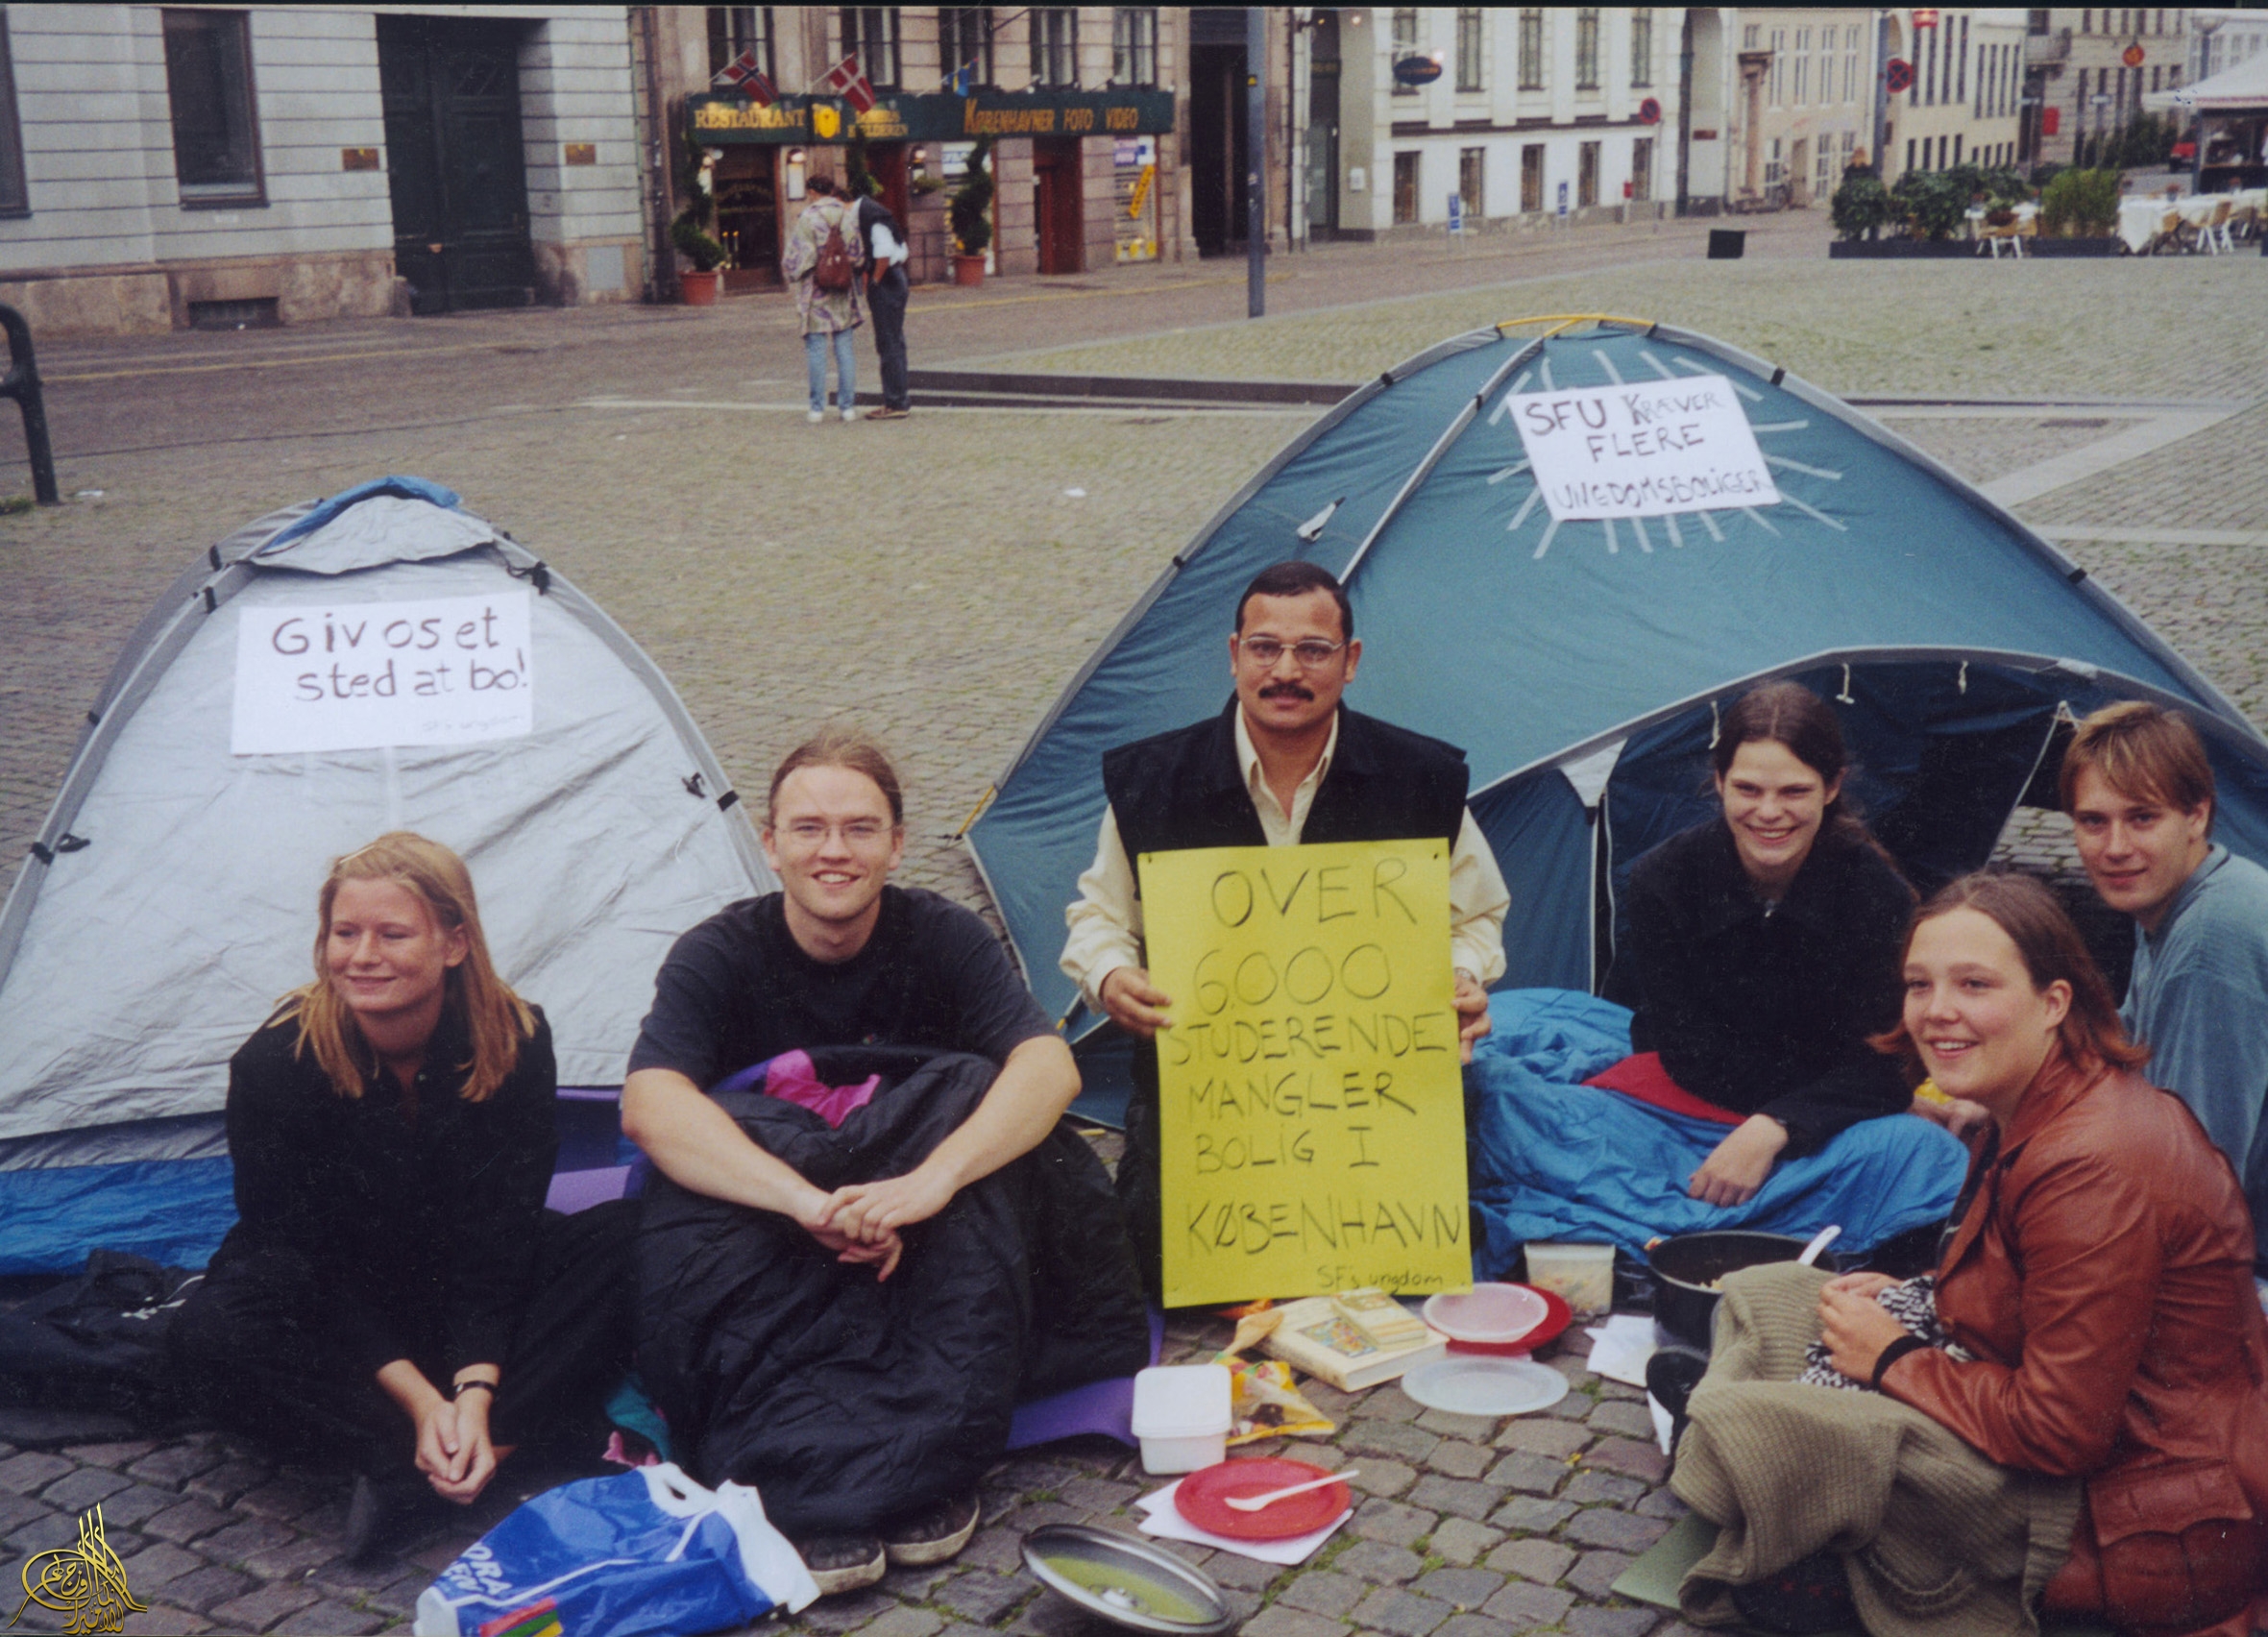 RESTAURANT
KØBENHAVNER FOTO VIDEO
SFU KRÆVER
FLERE
UNGDOMSBOLIGER
Giv os et
sted at bo!
SF's ungdom
OVER
6.000
STUDERENDE
MANGLER
BOLIG I
KØBENHAVN
SF's ungdom